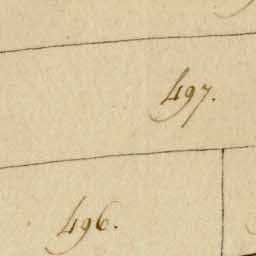 497.
496.